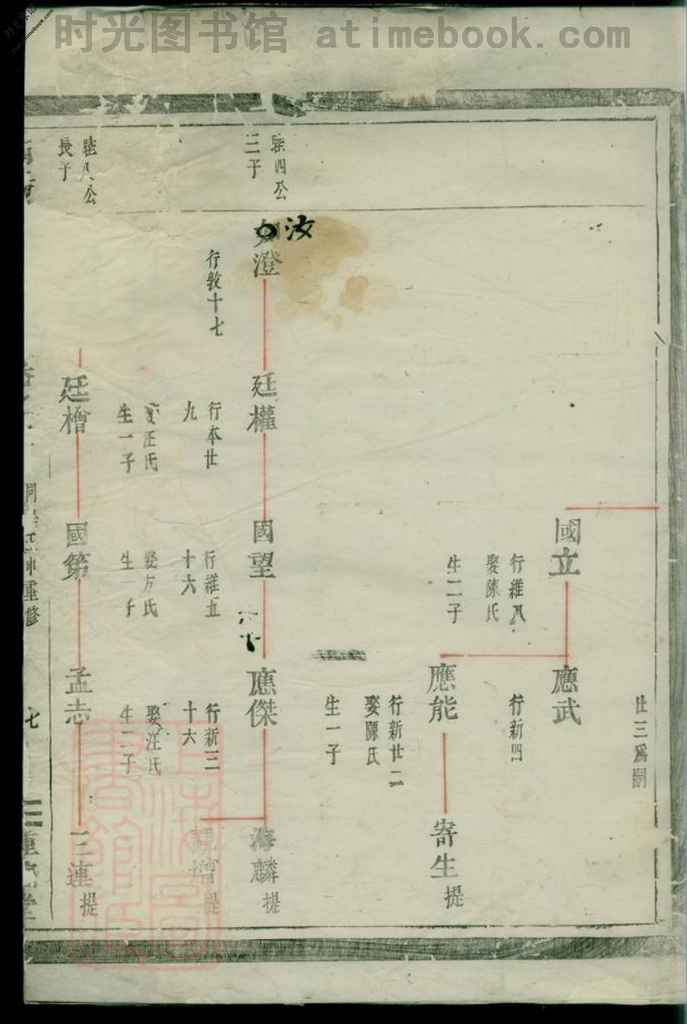 时光图书馆 atimebook.com
廿三爲嗣
國立
行維八
娶陳氏
生二子
應武
行新四
應能
行新廿二
娶陳氏
生一子
寄生 提
四公
三子
汝
澄
行敦十七
廷權
行本廿
九
國望
行維五
十六
應傑
行新三
十六
海麟 提
增 提
公
長子
廷檜
汪氏
生一子
國第
娶方氏
生 子
孟志
娶汪氏
生二子
三連 提
重修
七